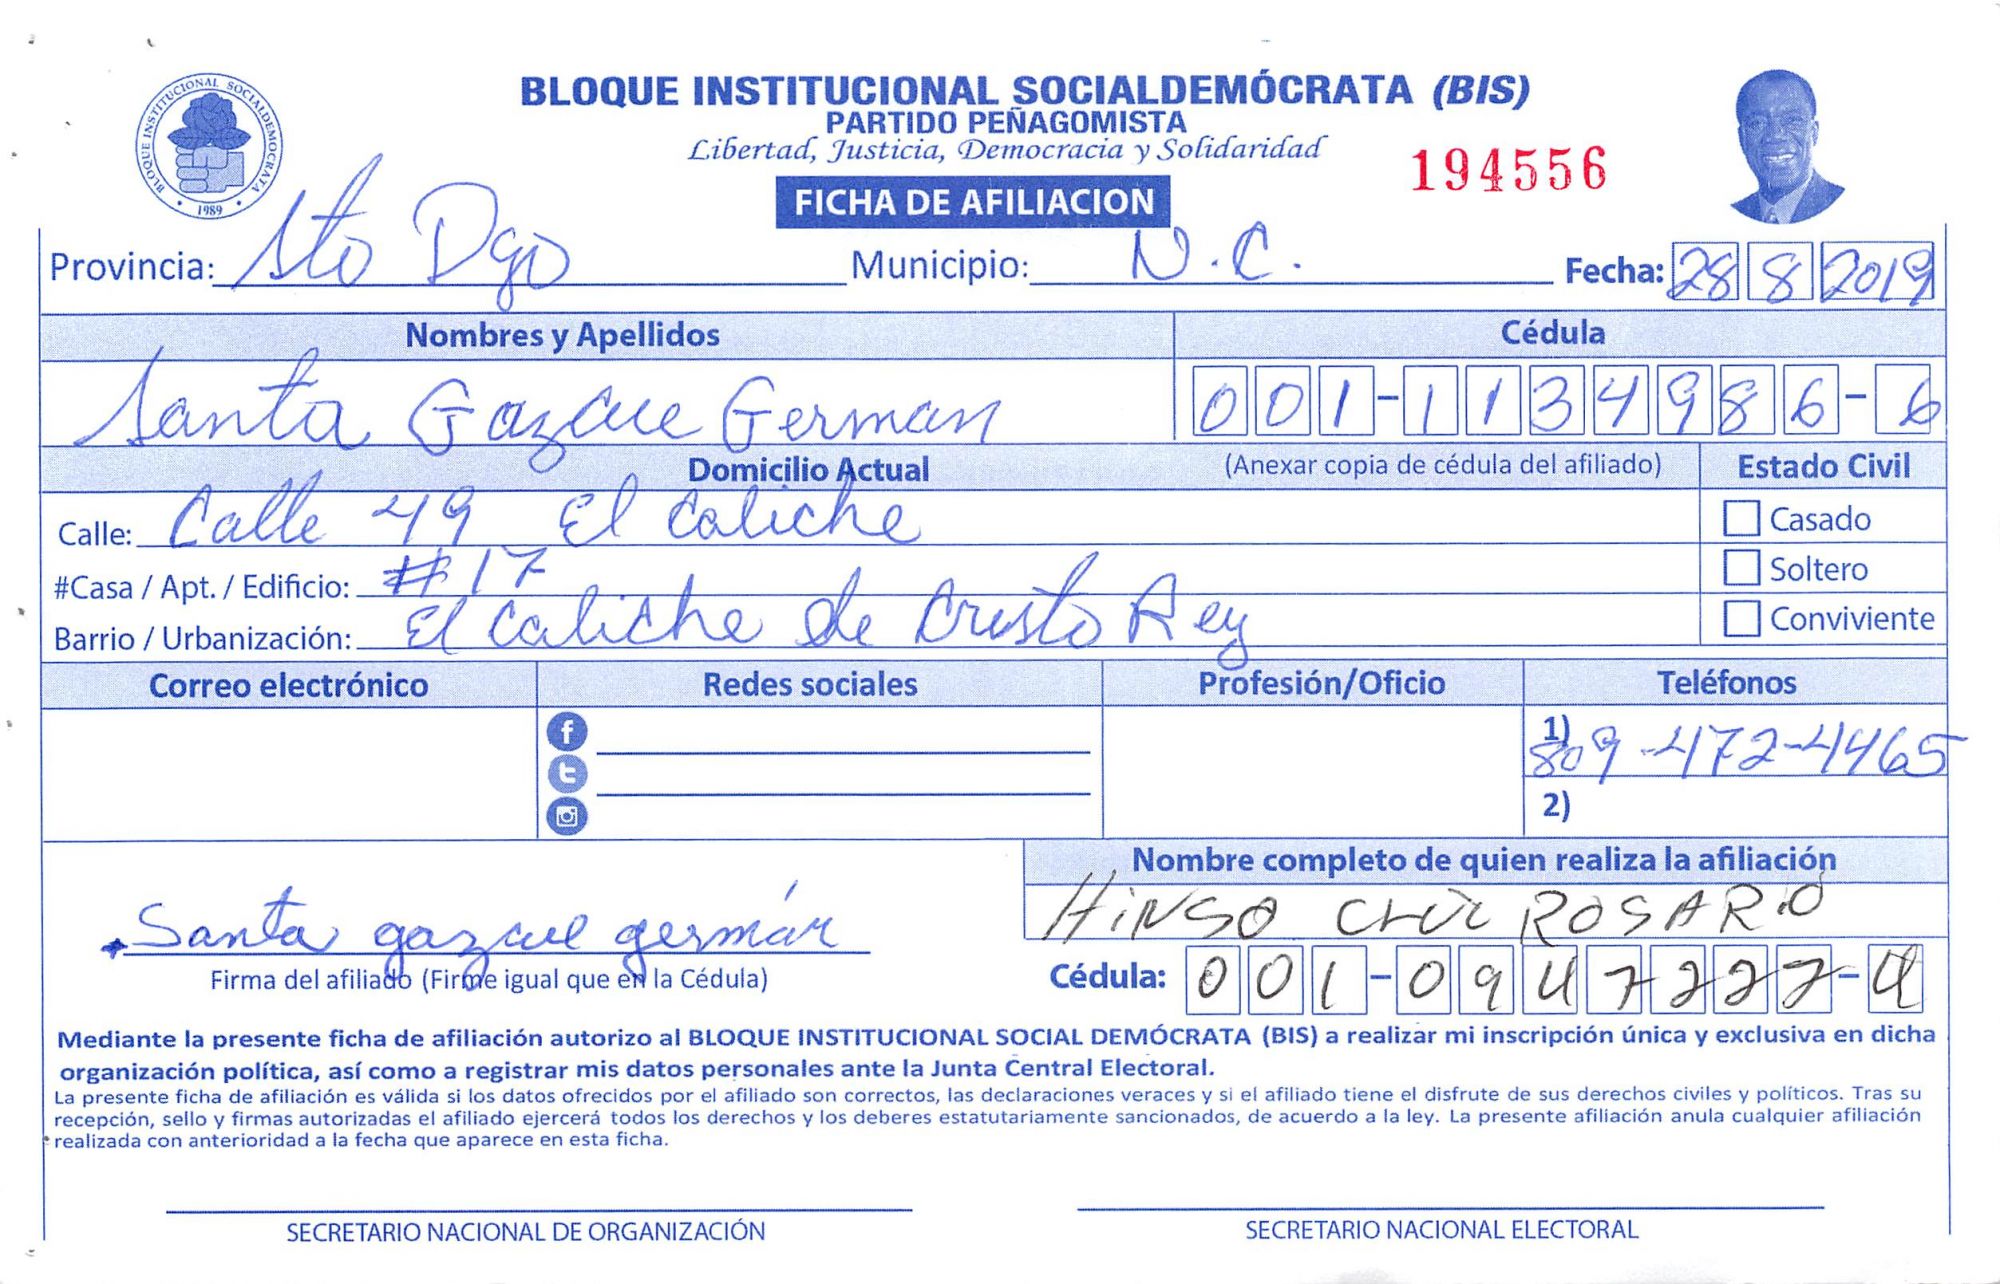 BLOQUE INSTITUCIONAL SOCIALDEMOCRATA
1989
BLOQUE INSTITUCIONAL SOCIALDEMÓCRATA (BIS)
PARTIDO PEÑAGOMISTA
Libertad, Justicia, Democracia y Solidaridad
194556
FICHA DE AFILIACION
Provincia: Sto Dgo Municipio: D.C. Fecha: 28 8 2019
Nombres y Apellidos Cédula
Santa Gazcue German 001-1134986-6
Domicilio Actual (Anexar copia de cédula del afiliado) Estado Civil
Calle: Calle 49 El Caliche Casado
#Casa / Apt. / Edificio: #17 Soltero
Barrio / Urbanización: El Caliche de Cristo Rey Conviviente
Correo electrónico Redes sociales Profesión/Oficio Teléfonos
1) 809-472-4465
2)
Nombre completo de quien realiza la afiliación
HiNSO CRUZ ROSARiO
Santa gazcue germán
Firma del afiliado (Firme igual que en la Cédula) Cédula: 001-0947222-4
Mediante la presente ficha de afiliación autorizo al BLOQUE INSTITUCIONAL SOCIAL DEMÓCRATA (BIS) a realizar mi inscripción única y exclusiva en dicha
organización política, así como a registrar mis datos personales ante la Junta Central Electoral.
La presente ficha de afiliación es válida si los datos ofrecidos por el afiliado son correctos, las declaraciones veraces y si el afiliado tiene el disfrute de sus derechos civiles y políticos. Tras su
recepción, sello y firmas autorizadas el afiliado ejercerá todos los derechos y los deberes estatutariamente sancionados, de acuerdo a la ley. La presente afiliación anula cualquier afiliación
realizada con anterioridad a la fecha que aparece en esta ficha.
SECRETARIO NACIONAL DE ORGANIZACIÓN SECRETARIO NACIONAL ELECTORAL